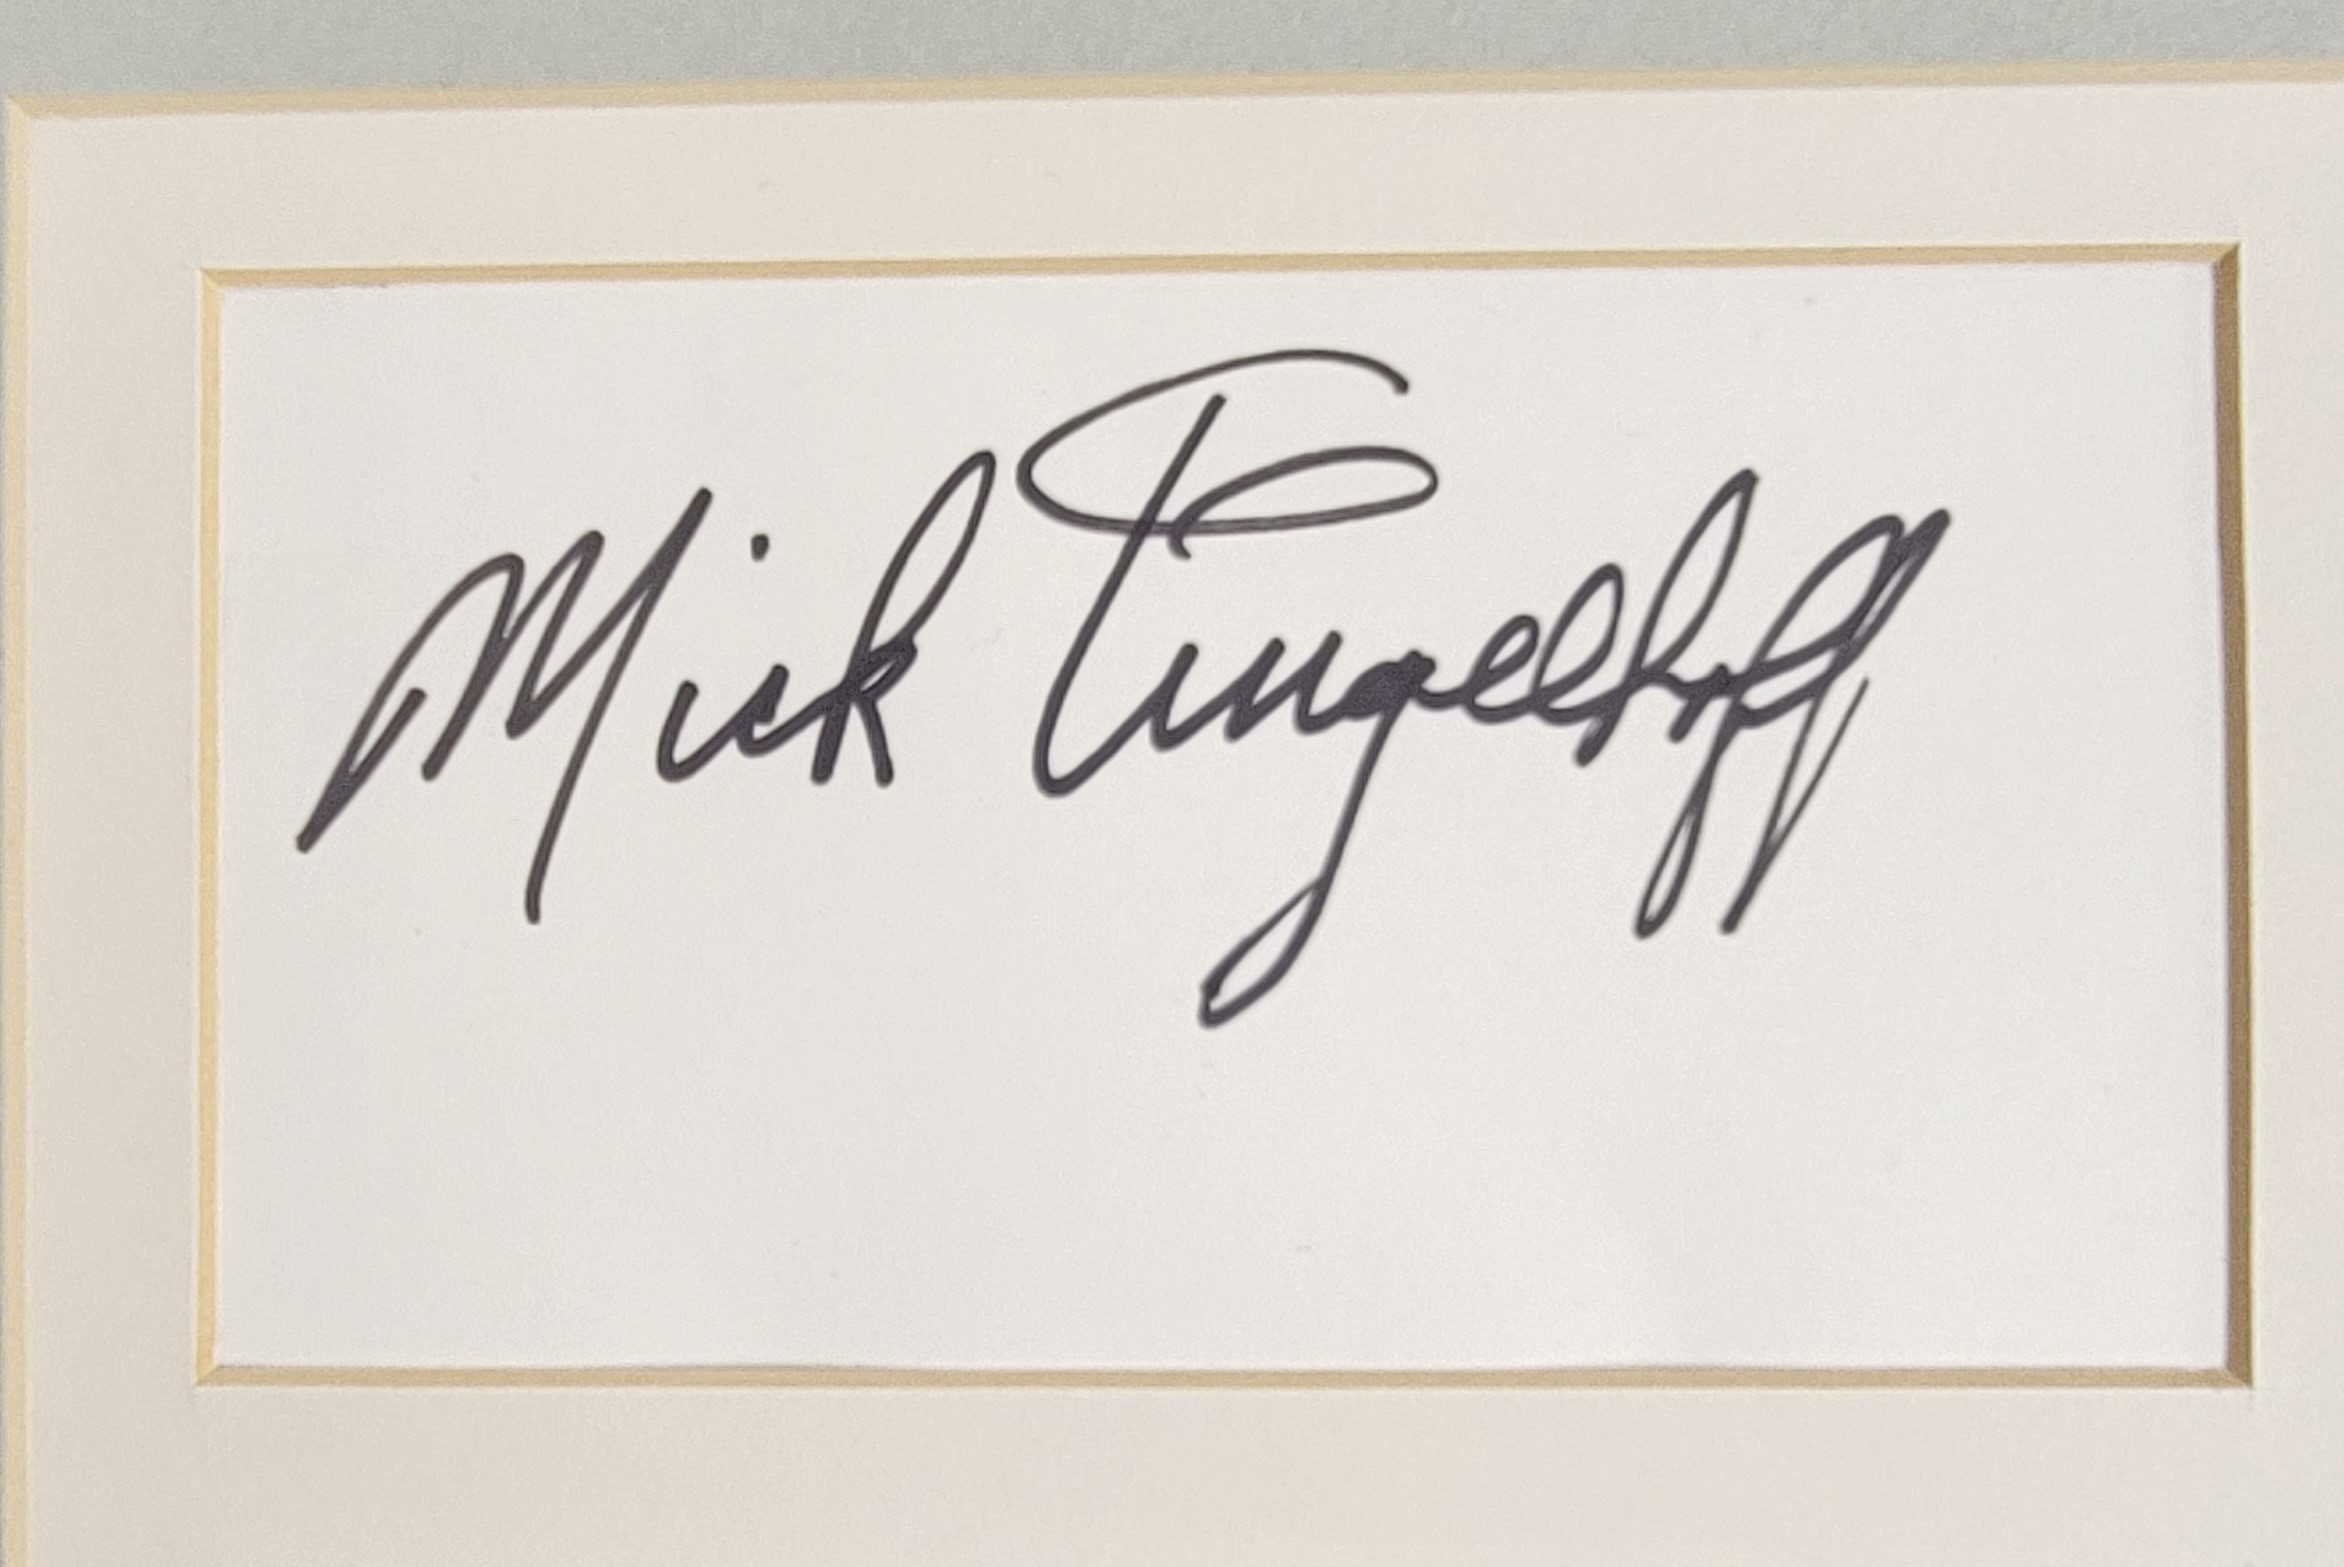 Mick Tingelhoff